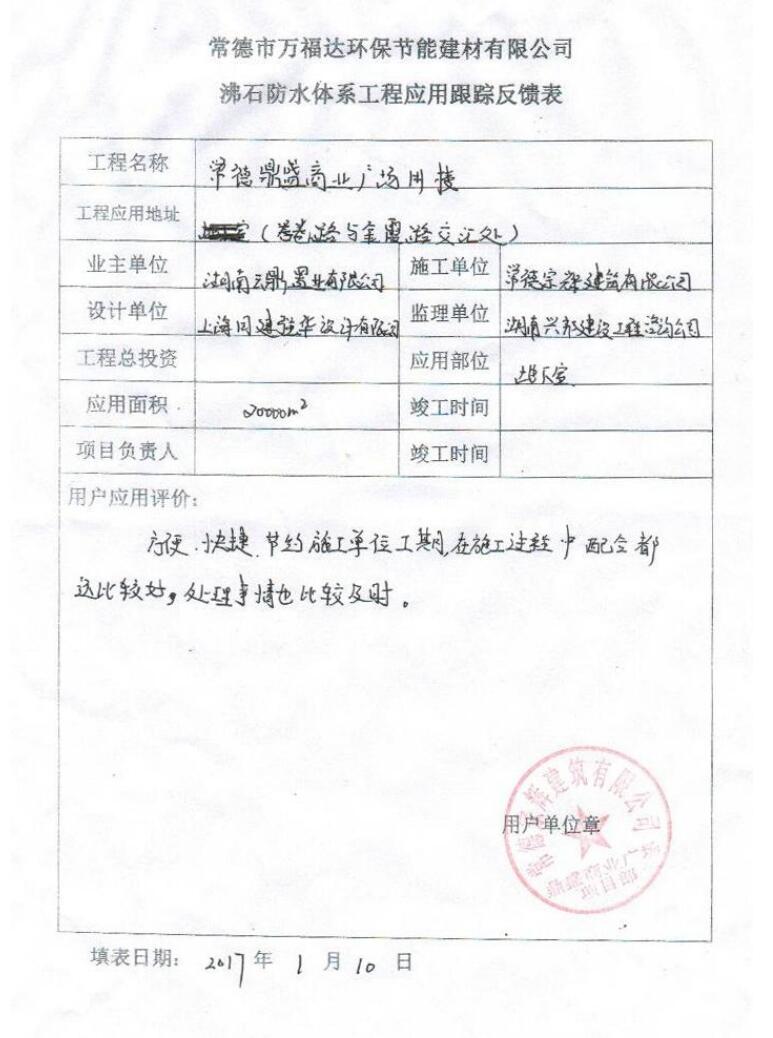 常德市万福达环保节能建材有限公司
沸石防水体系工程应用跟踪反馈表
工程名称 常德鼎盛商业广场
工程应用地址 (路与金霞路交汇处)
业主单位 湖南云鼎置业有限公司 施工单位 常德宗辉建筑有限公司
设计单位 上海同建强华设计有限公司 监理单位 湖南兴邦建设工程咨询公司
工程总投资 应用部位 地下室
应用面积 20000m² 竣工时间
项目负责人 竣工时间
用户应用评价:
方便.快捷.节约施工单位工期,在施工过程中配合都
还比较好,处理事情也比较及时。
建筑有限公司
用户单位章
填表日期: 2017年1月10日